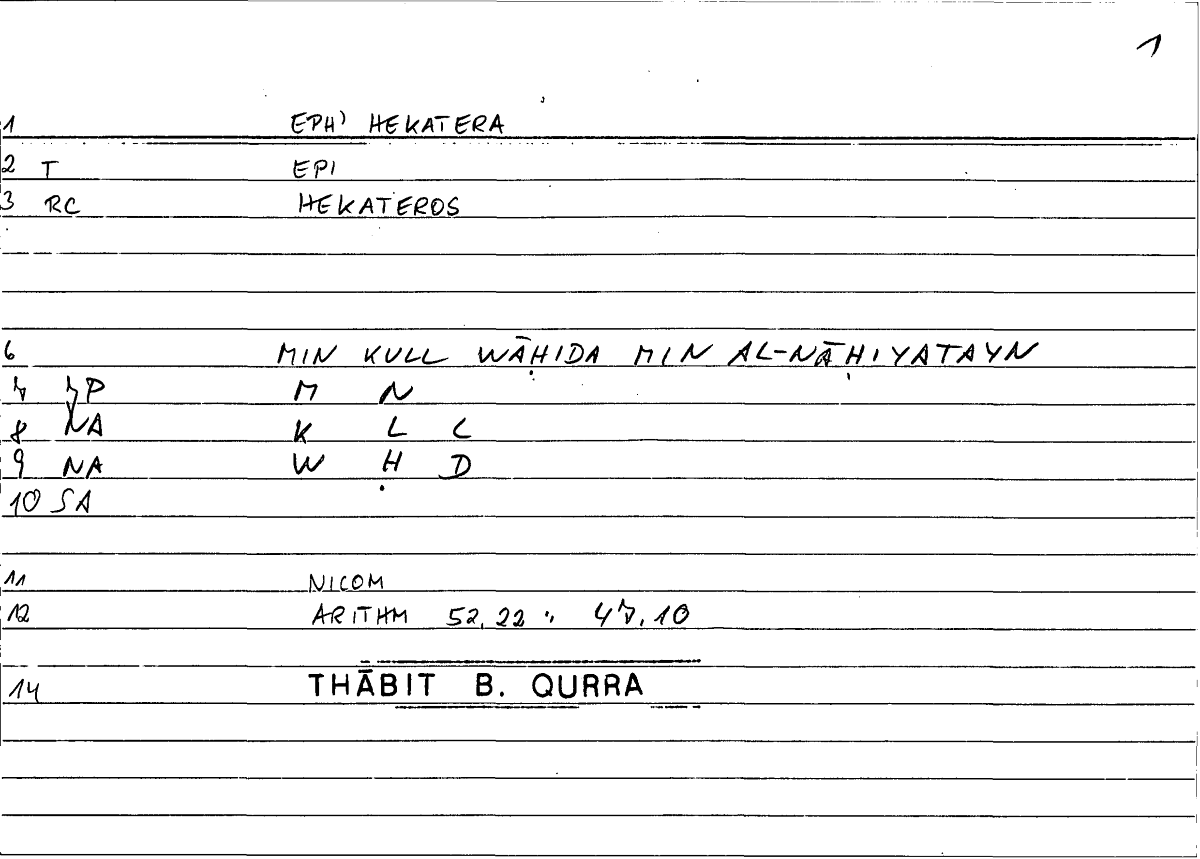 1
1 EPH' HEKATERA
2 T EPI
3 RC HEKATEROS
6 MIN KULL WĀḤIDA MIN AL-NĀḤIYATAYN
7 7P M N
8 NA K L L
9 NA W Ḥ D
10 SA
11 NICOM
12 ARITHM 52,22 : 47,10
14 THĀBIT B. QURRA